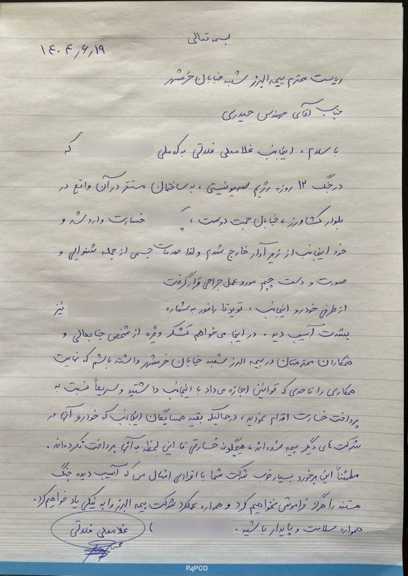 بسمه تعالی
۱۴۰۴/۶/۱۹
ریاست محترم بیمه البرز شعبه خیابان خرمشهر
جناب آقای مهندس حیدری
با سلام، اینجانب غلامعلی به کدملی که
در جنگ ۱۲ روزه رژیم صهیونیستی، به ساختمان مستقر در آن واقع در
بلوار کشاورز، خیابان حجت دوست، خسارت وارد شد و
خود اینجانب از زیر آوار خارج شدم و لذا صدمات جسمی از جمله شنوایی و
صورت و دست چپم مورد عمل جراحی قرار گرفت
از طرفی خودرو اینجانب، به شماره نیز
بشدت آسیب دید. در اینجا می‌خواهم تشکر ویژه از شخص جنابعالی و
همکاران محترمتان در بیمه البرز شعبه خیابان خرمشهر داشته باشم که نهایت
همکاری را تا حدی که قوانین اجازه می‌داد با اینجانب داشتید و سریعاً نسبت به
پرداخت خسارت اقدام نمودید، در حالیکه بقیه همسایگان اینجانب که خودرو آنها در
شرکت‌های دیگر بیمه شده‌اند، هیچگونه خسارتی تا این لحظه به آنها پرداخت نکرده‌اند.
مطمئناً این برخورد بسیار خوب شرکت شما با افرادی امثال من که آسیب دیده جنگ
هستند را هرگز فراموش نخواهیم کرد و همواره عملکرد شرکت بیمه البرز را به نیکی یاد خواهیم کرد.
همواره سلامت و پایدار باشید.
غلامعلی
PAPCO